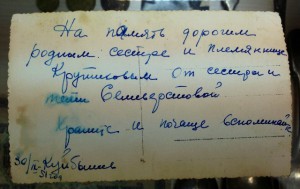 На память дорогим
родным сестре и племяннице
Крутиковым от сестры и
тёти Селиверстовой
Храните и почаще вспоминайте
30/IX-51 г. Куйбышев